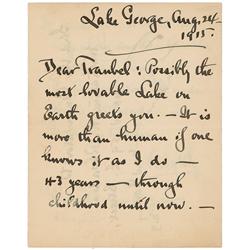 Lake George, Aug. 24 -
1915.
Dear Traubel: Possibly the
most lovable Lake on
Earth greets you. — It is
more than human if one
knows it as I do —
43 years — through
childhood until now. —